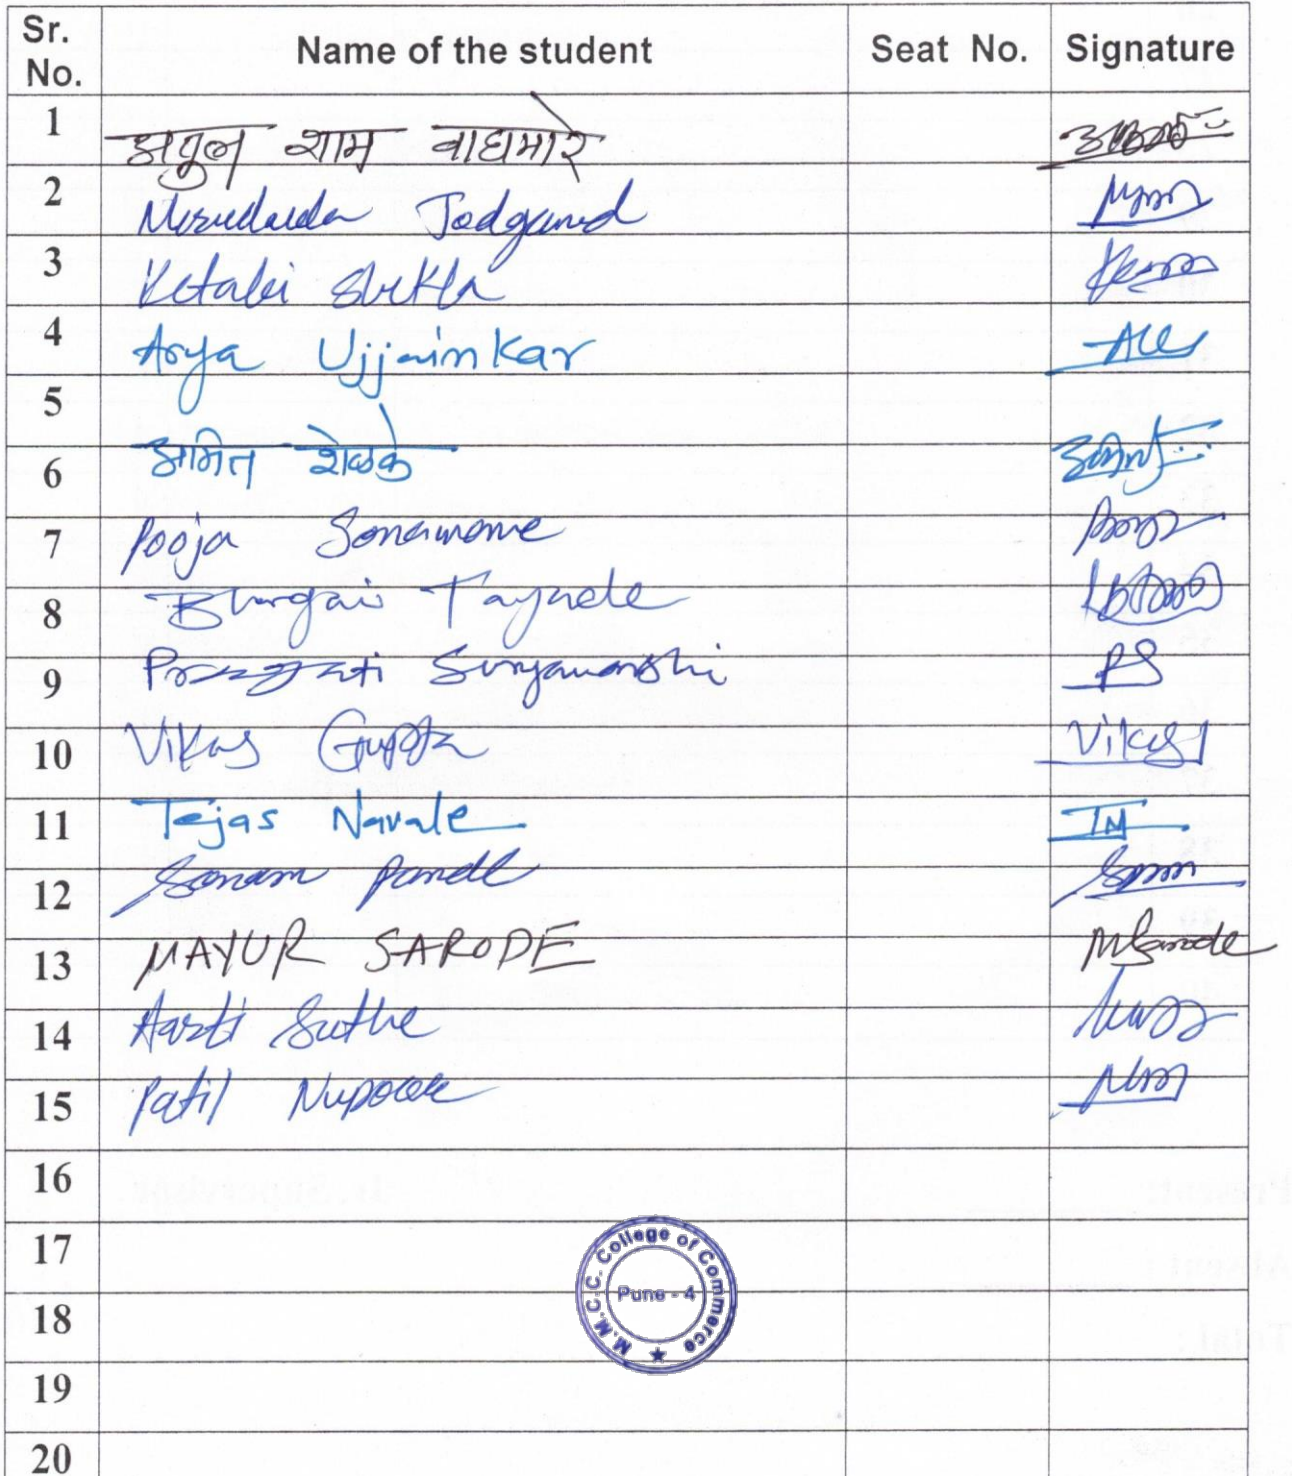 Sr. No. Name of the student Seat No. Signature
1 अतुल शाम वाघमारे
2
3 Ketaki Shukla
4 Arya Ujjainkar
5
6 अमित शेळके
7 Pooja Sonawane
8 Bhargavi Tayade
9 Pragati Suryawanshi PS
10 Vikas Gupta Vikas
11 Tejas Navale TN
12 Sonam Pande
13 MAYUR SARODE MSarode
14 Aarti Suthe
15 Patil Nupoor
16
17
18
19
20
M.M.C.C. College of Commerce
Pune - 4